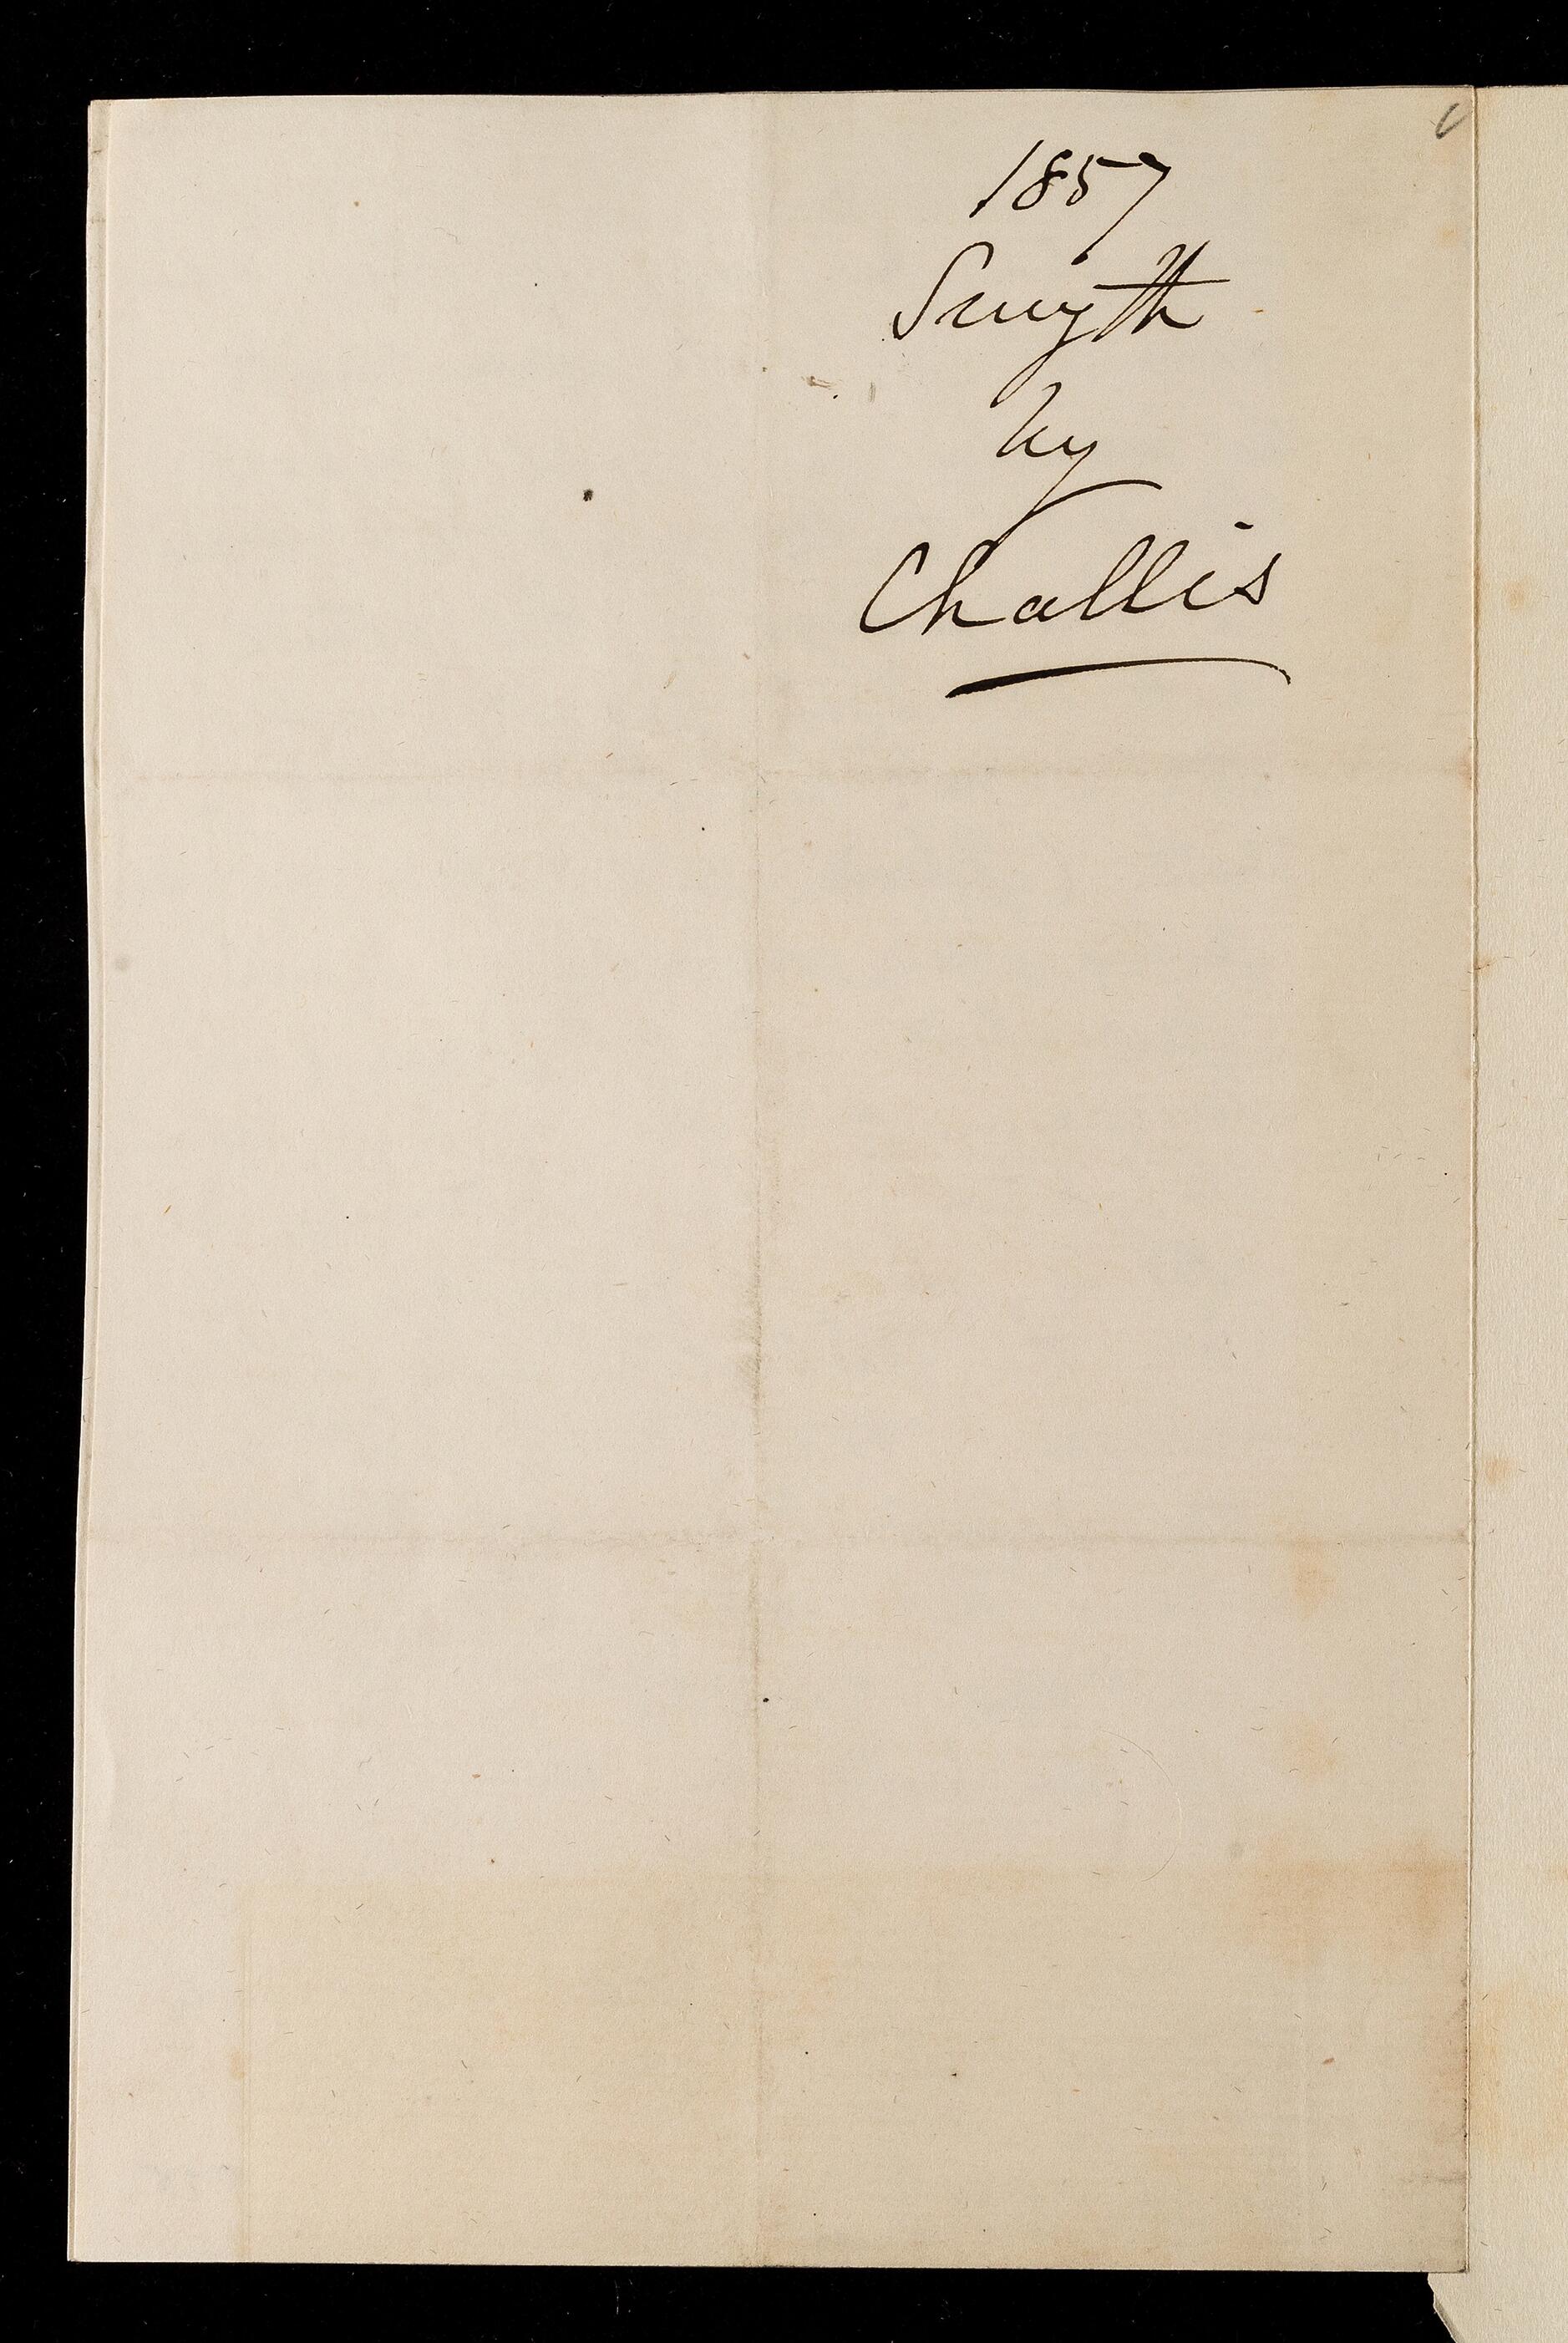 1857
Smyth
by
Challis